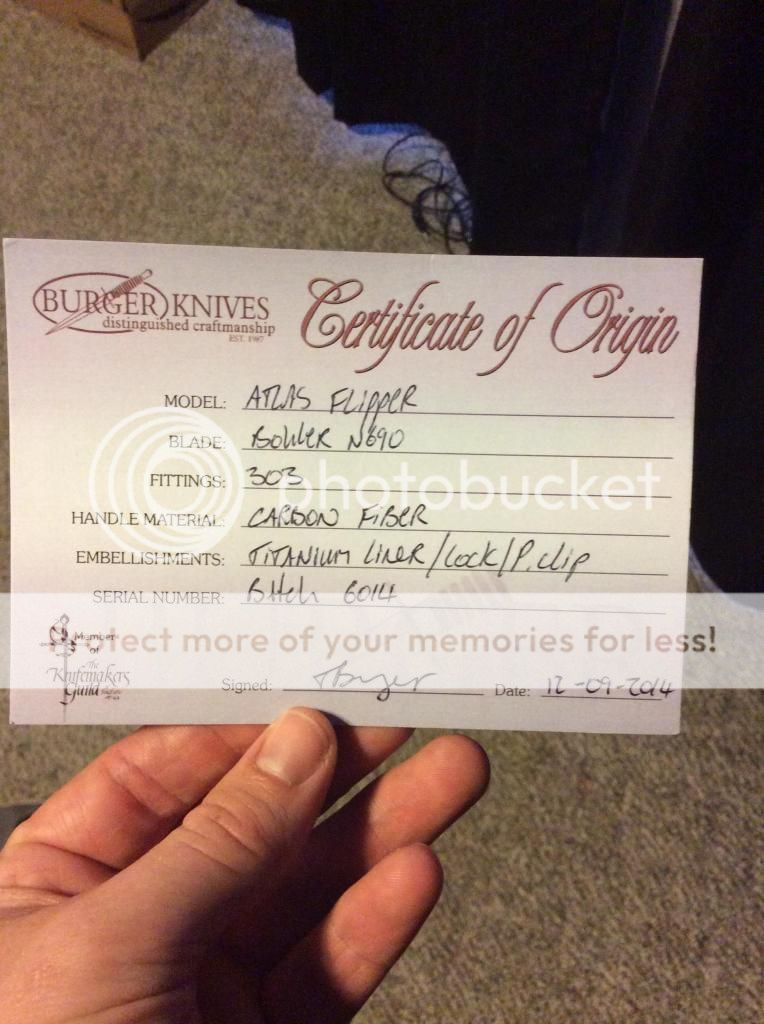 BURGER KNIVES
distinguished craftmanship
EST. 1987
Certificate of Origin
MODEL: ATLAS FLIPPER
BLADE: Bohler N690
FITTINGS: 303
photobucket
HANDLE MATERIAL: CARBON FIBER
EMBELLISHMENTS: TITANIUM LINER/Lock/P.clip
SERIAL NUMBER: 6014
Protect more of your memories for less!
Member
of
The
Knifemakers
Guild
Signed: Date: 12-09-2014